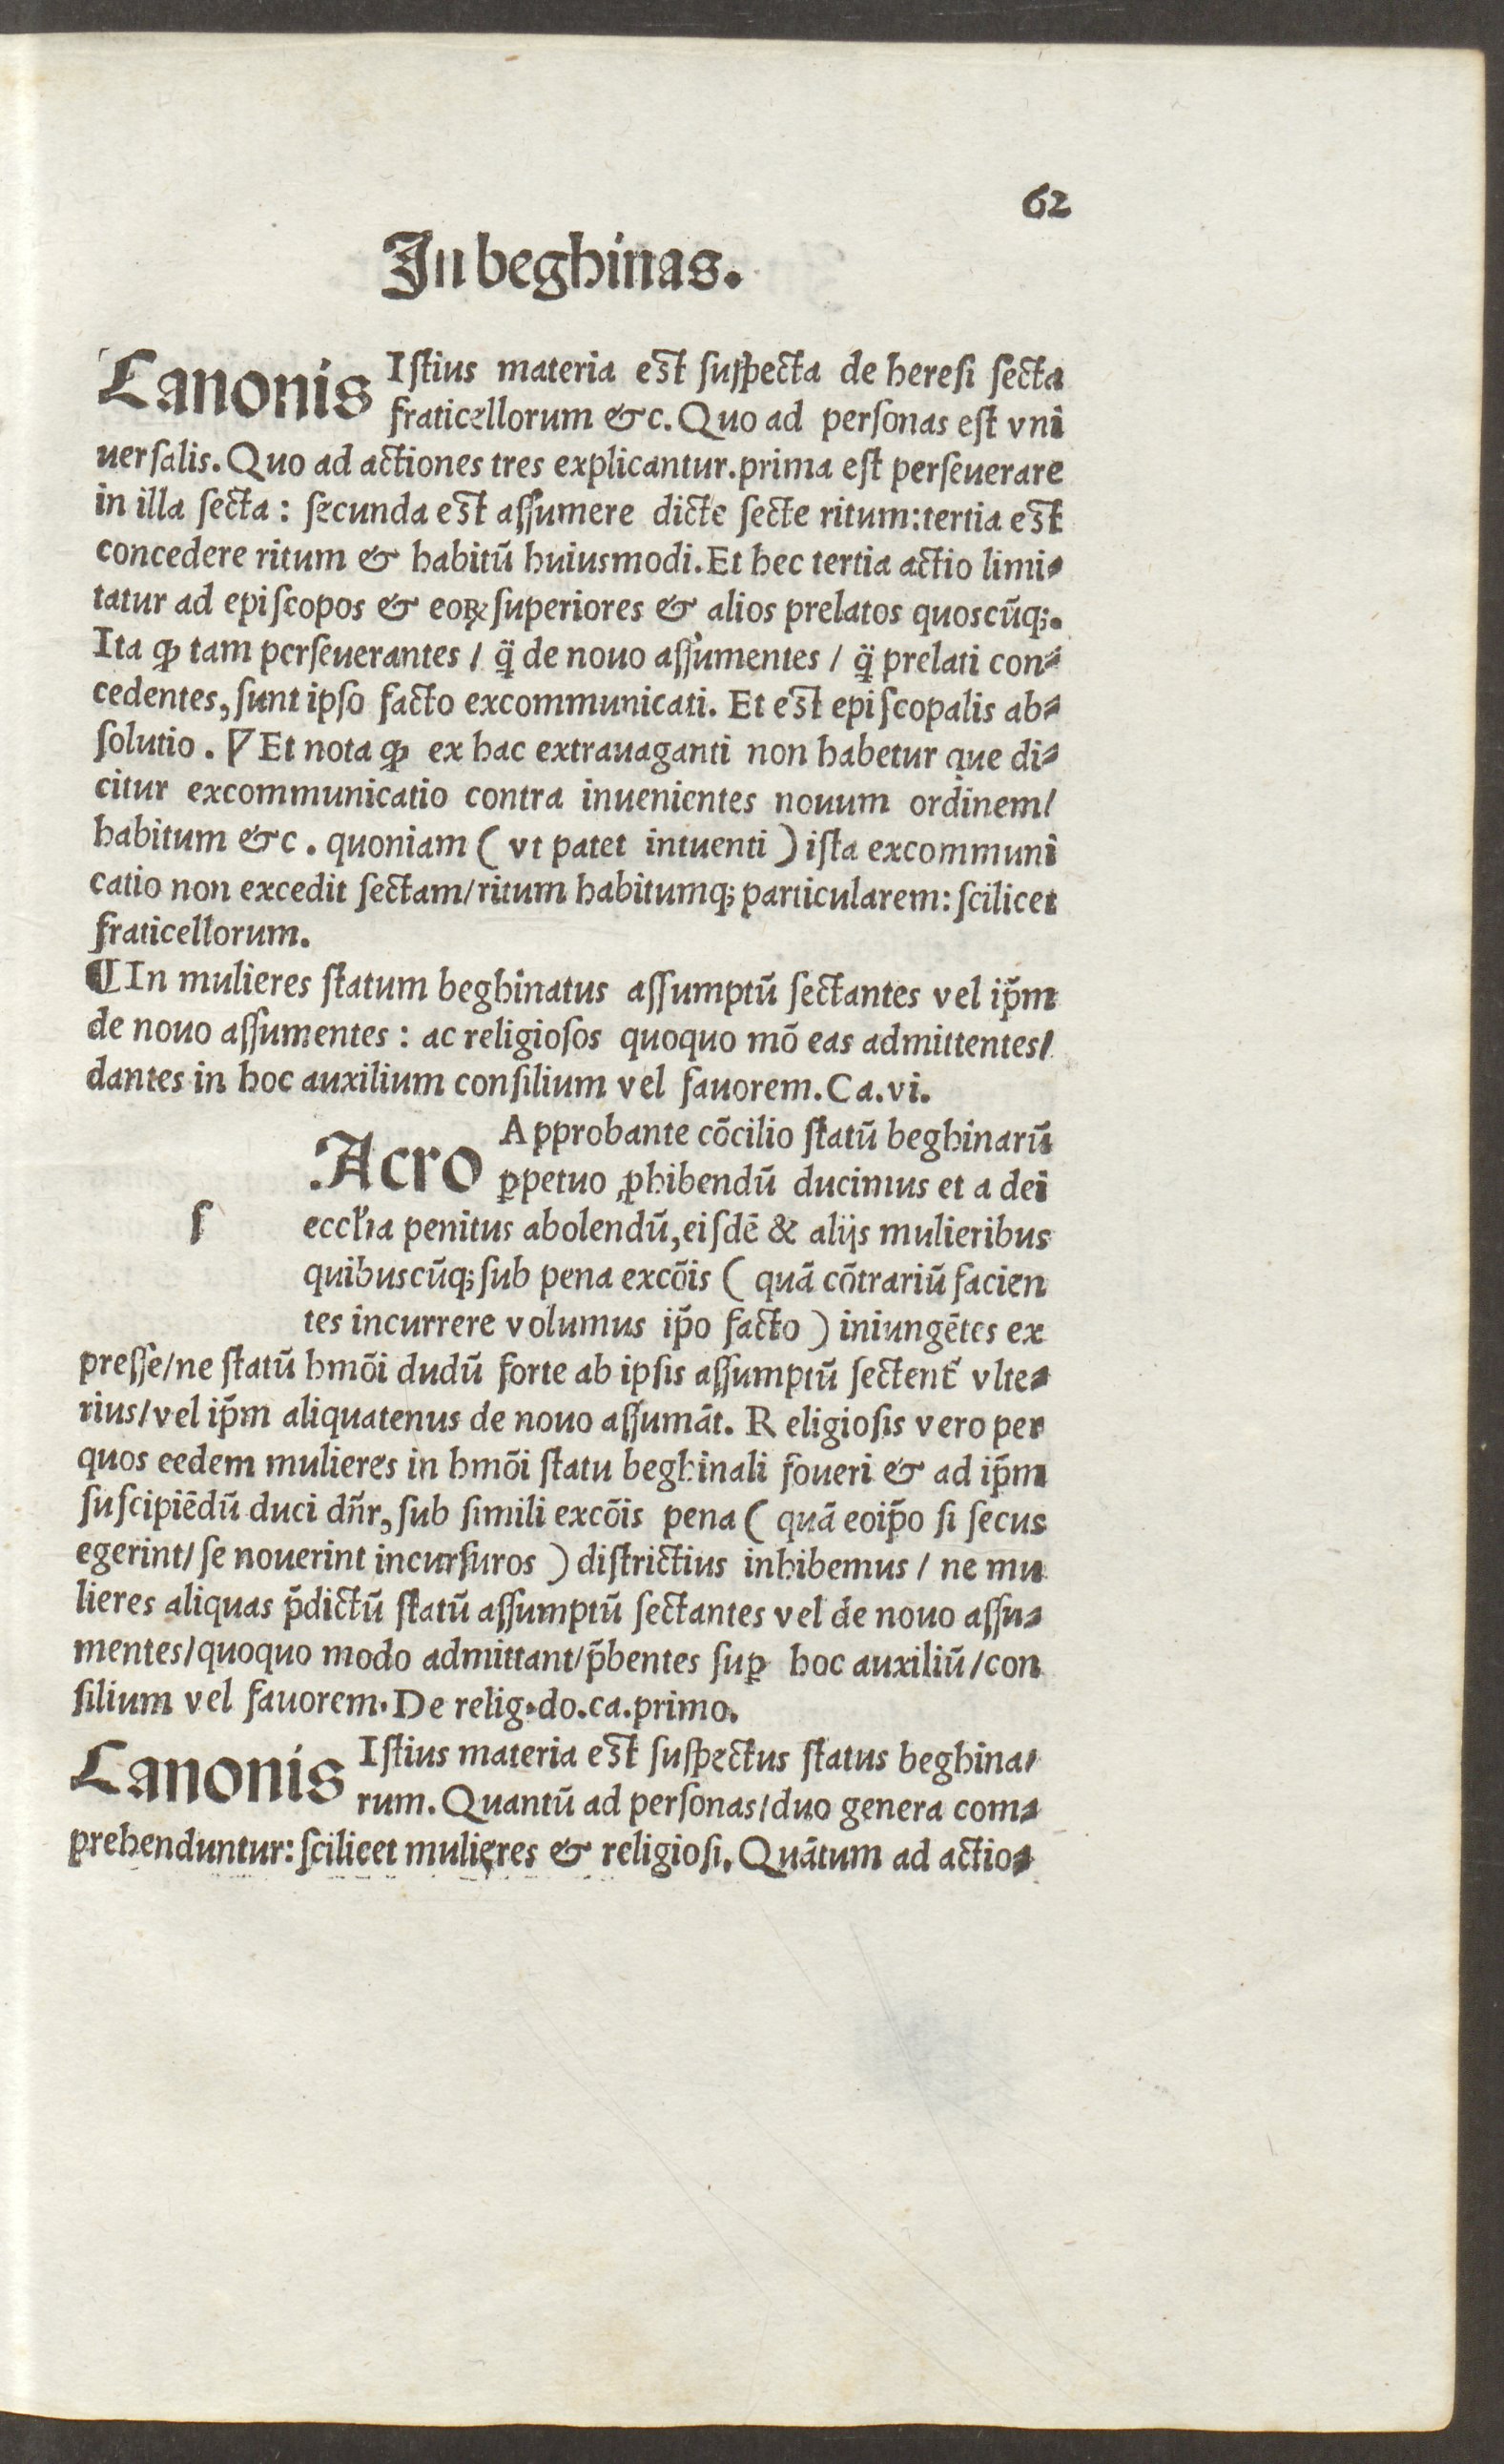 62
In beghinas.
Canonis Iſtius materia eſt ſuſpecta de hereſi ſecta
fraticellorum &c. Quo ad perſonas eſt vni
uerſalis. Quo ad actiones tres explicantur. prima eſt perſeuerare
in illa ſecta : ſecunda eſt aſſumere dicte ſecte ritum: tertia eſt
concedere ritum & habitū huiusmodi. Et hec tertia actio limi⸗
tatur ad epiſcopos & eoꝝ ſuperiores & alios prelatos quoſcūqꝫ.
Ita ꝙ tam perſeuerantes / q̈ de nouo aſſumentes / q̈ prelati con⸗
cedentes, ſunt ipſo facto excommunicati. Et eſt epiſcopalis ab⸗
ſolutio . ∇ Et nota ꝙ ex hac extrauaganti non habetur que di⸗
citur excommunicatio contra inuenientes nouum ordinem/
habitum &c . quoniam ( vt patet intuenti ) iſta excommuni
catio non excedit ſectam/ritum habitumqꝫ particularem: ſcilicet
fraticellorum.
¶ In mulieres ſtatum beghinatus aſſumptū ſectantes vel ip̄m
de nouo aſſumentes : ac religioſos quoquo mō eas admittentes/
dantes in hoc auxilium conſilium vel fauorem. Ca.vi.
ſ
Acro Approbante cōcilio ſtatū beghinarū
ꝑpetuo ꝓhibendū ducimus et a dei
eccľia penitus abolendū, eiſdē & alijs mulieribus
quibuſcūqꝫ ſub pena excōis ( quā cōtrariū facien
tes incurrere volumus ip̄o facto ) iniungētes ex
preſſe/ne ſtatū hmōi dudū forte ab ipſis aſſumptū ſectent᷑ vlte⸗
rius/vel ip̄m aliquatenus de nouo aſſumāt. Religioſis vero per
quos eedem mulieres in hmōi ſtatu beghinali foueri & ad ip̄m
ſuſcipiēdū duci dn̄r, ſub ſimili excōis pena ( quā eoip̄o ſi ſecus
egerint/ ſe nouerint incurſuros ) diſtrictius inhibemus / ne mu
lieres aliquas p̄dictū ſtatū aſſumptū ſectantes vel de nouo aſſu⸗
mentes/quoquo modo admittant/p̄bentes ſuꝑ hoc auxiliū/con
ſilium vel fauorem. De relig.do.ca.primo.
Canonis Iſtius materia eſt ſuſpectus ſtatus beghina/
rum. Quantū ad perſonas/duo genera com⸗
prehenduntur: ſcilicet mulieres & religioſi. Quātum ad actio⸗